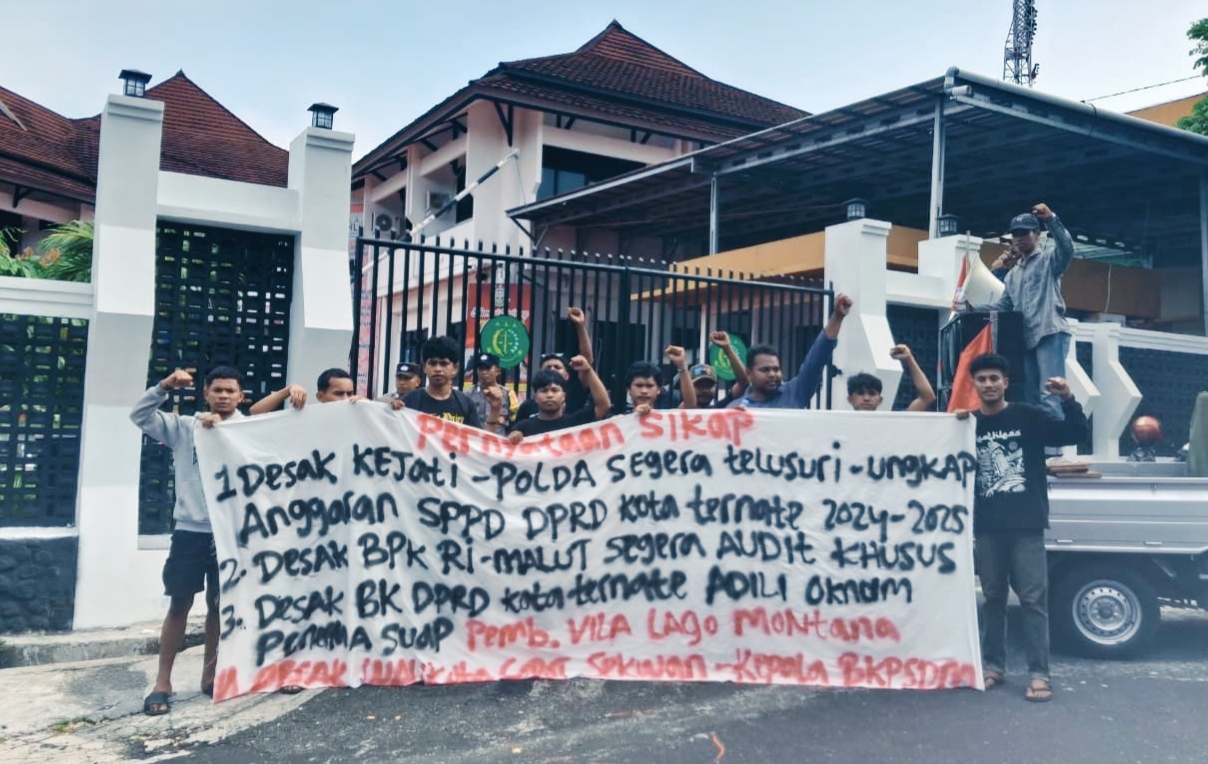 Pernyataan Sikap
1 Desak KEJati - POLDA segera telusuri - ungkap
Anggaran SPPD DPRD kota ternate 2024-2025
2. Desak BPK RI - MALUT segera AUDIT KHUSUS
3. Desak BK DPRD kota ternate ADILI oknum
Penerima Suap Pemb. VILA Lago Montana
Desak Walikota Copot Sekwan - Kepala BKPSDM